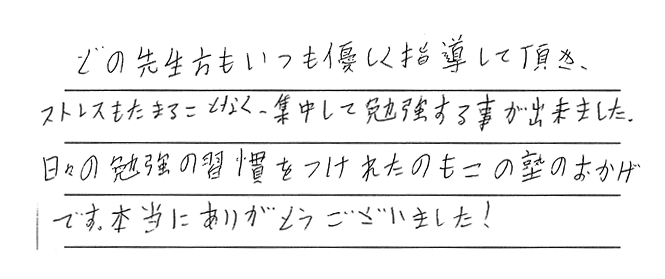 どの先生方もいつも優しく指導して頂き、
ストレスもたまることなく、集中して勉強する事が出来ました。
日々の勉強の習慣をつけれたのもこの塾のおかげ
です。本当にありがとうございました！